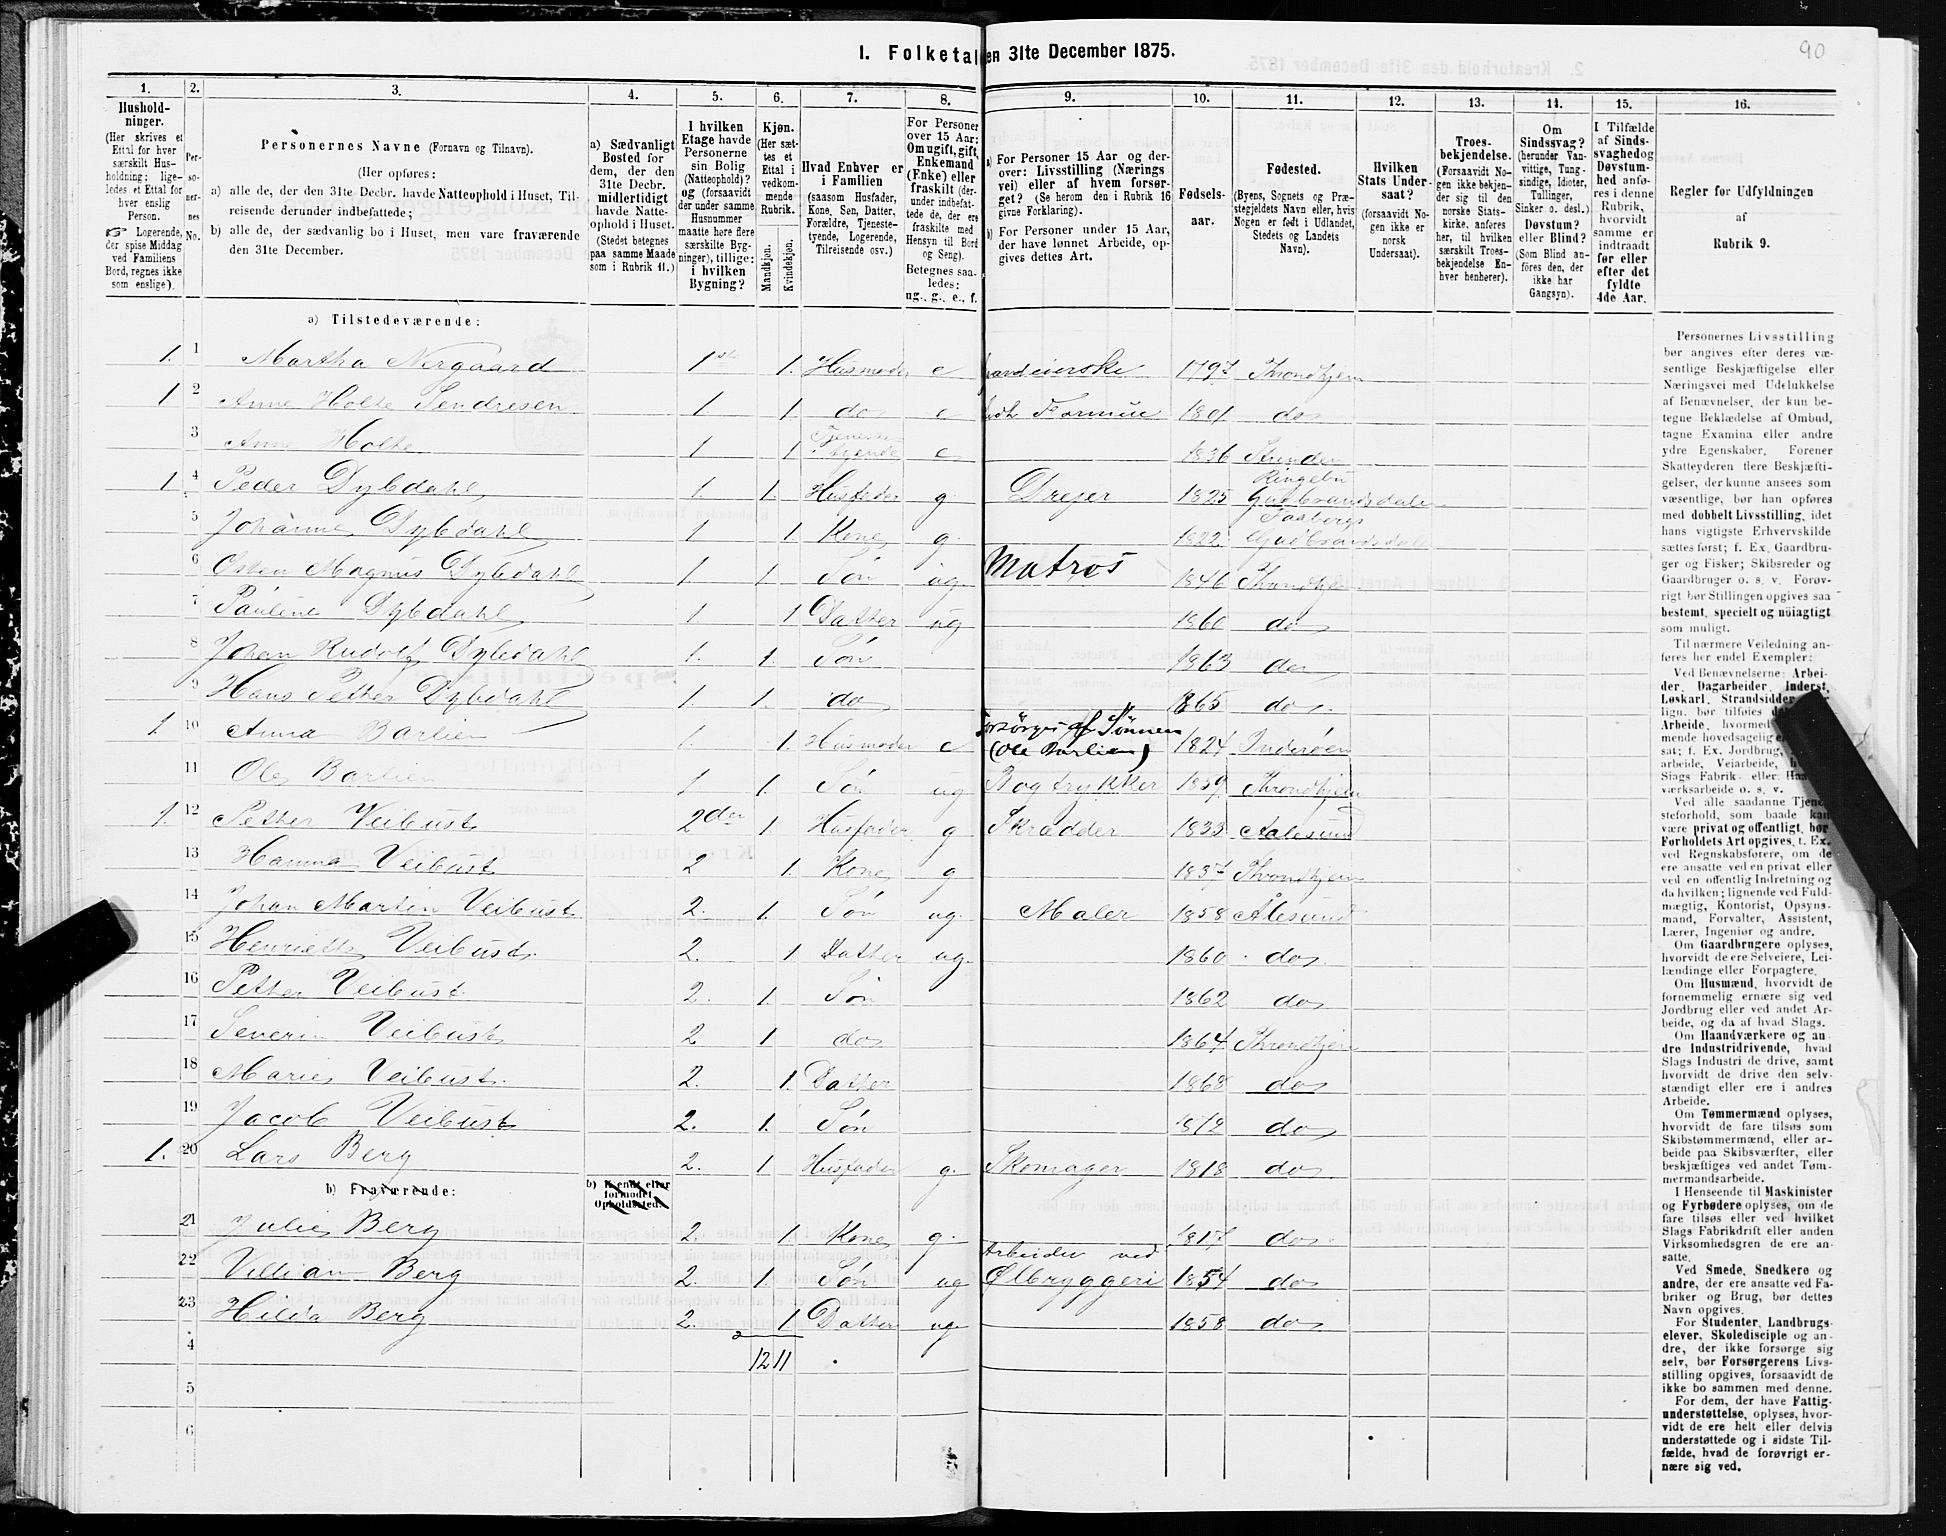 90
1. Folketal den 31te December 1875.
1. 2. 3. 4. 5. 6. 7. 8. 9. 10. 11. 12. 13. 14. 15. 16.
Hushold-
ninger.
(Her skrives et
Ettal for hver
særskilt Hus-
holdning; lige-
ledes et Ettal for
hver enslig
Person.
☞ Logerende,
der spise Middag
ved Familiens
Bord, regnes ikke
som enslige).
Per-
so-
ner-
nes
No.
Personernes Navne (Fornavn og Tilnavn).
(Her opføres:
a) alle de, der den 31te Decbr. havde Natteophold i Huset, Til-
reisende derunder indbefattede;
b) alle de, der sædvanlig bo i Huset, men vare fraværende
den 31te December.
a) Sædvanligt
Bosted for
dem, der den
31te Decbr.
midlertidigt
havde Natte-
ophold i Huset.
(Stedet betegnes
paa samme Maade
som i Rubrik 11.)
I hvilken
Etage havde
Personerne
sin Bolig
(Natteophold)?
og (forsaavidt
der under samme
Husnummer
maatte høre flere
særskilte Byg-
ninger), tillige:
i hvilken
Bygning?
Kjøn.
(Her sæt-
tes et
Ettal i
vedkom-
mende
Rubrik.
Mandkjøn.
Kvindekjøn.
Hvad Enhver er
i Familien
(saasom Husfader,
Kone, Søn, Datter,
Forældre, Tjeneste-
tyende, Logerende,
Tilreisende osv.)
For Personer
over 15 Aar:
Om ugift, gift,
Enkemand
(Enke) eller
fraskilt (der-
under indbefat-
tede de, der ere
fraskilte med
Hensyn til Bord
og Seng).
Betegnes saa-
ledes:
ug., g., e., f.
a) For Personer 15 Aar og der-
over: Livsstilling (Nærings
vei) eller af hvem forsør-
get? (Se herom den i Rubrik 16
givne Forklaring).
b) For Personer under 15 Aar,
der have lønnet Arbeide, op-
gives dettes Art.
Fødsels-
aar.
Fødested.
(Byens, Sognets og Præ-
stegjeldets Navn eller, hvis
Nogen er født i Udlandet,
Stedets og Landets
Navn).
Hvilken
Stats Under-
saat?
(forsaavidt No-
gen ikke er
norsk
Undersaat).
Troes-
bekjendelse.
(Forsaavidt No-
gen ikke bekjen-
der sig til den
norske Stats-
kirke, anføres
her, til hvilken
særskilt Troes-
bekjendelse En-
hver henhører).
Om
Sindssvag?
(herunder Van-
vittige, Tung-
sindige, Idioter,
Tullinger,
Sinker o. desl.)
Døvstum?
eller Blind?
(Som Blind an-
føres den, der
ikke har
Gangsyn).
I Tilfælde
af Sinds-
svaghed og
Døvstum-
hed anfø-
res i denne
Rubrik,
hvorvidt
samme er
indtraadt
før eller
efter det
fyldte
4de Aar.
Regler for Udfyldningen
af
Rubrik 9.
a) Tilstedeværende:
1. 1 Martha Nergaard 1ste 1. Husmoder e Gaardeierske 1797 Throndhjem
1 2 Anne Holte Sendresen 1 1. do e 1801 do
3 Anne Holte 1 1 Tjeneste-
tyende e 1836 Strinden
1 4 Peder Dybdahl 1. 1. Husfader g. Drejer 1825 Ringebu
Gudbrandsdalen
5 Johanne Dybdahl 1 1. Kone g. 1822 Faaberg
Gudbrandsdalen
6 Magnus Dybdahl 1 1. Søn ug Matros 1846 Throndhjem
7 Pauline Dybdahl 1 1 Datter ug 1860 do
8 Johan Rudolf Dybdahl 1. 1. Søn 1863 do
9 Hans Petter Dybdahl 1. 1. do 1865 do.
1. 10 Anna Barlien 1. 1. Husmoder e Forsörges af Sönnen
(Ole Barlien) 1824 Inderøen
11 Ole Barlien 1 1. Søn ug Bogtrykker 1859 Throndhjem
1. 12 Petter Veibust 2den 1. Husfader g Skrædder 1833 Aalesund
13 Hanna Veibust 2 1. Kone g 1837 Throndhjem
14 Johan Martin Veibust 2. 1. Søn ug. Maler 1858 Ålesund
15 Henriette Veibust 2. 1 Datter ug. 1860 do
16 Petter Veibust 2. 1. Søn 1862 do
17 Severin Veibust 2 1 do 1864 Throndhjem
18 Marie Veibust. 2. 1. Datter 1868 do
19 Jacob Veibust 2. 1. Søn 1872 do
1. 20 Lars Berg 2. 1 Husfader g. Skomager 1818 do
b) Fraværende:
b) Kjendt eller
formodet
Opholdssted.
21 Julie Berg 2. 1 Kone g. 1817 do
22 Villiam Berg 2. 1. Søn ug Arbeider ved
Ølbryggeri 1854 do
23 Hilda Berg 2. 1. Datter ug. 1858 do
4 12 11
5
6
Personernes Livsstilling
bør angives efter deres væ-
sentlige Beskjæftigelse eller
Næringsvei med Udelukkelse
af Benævnelser, der kun be-
tegne Beklædelse af Ombud,
tagne Examina eller andre
ydre Egenskaber. Forener
Skatteyderen flere Beskjæfti-
gelser, der kunne ansees som
væsentlige, bør han opføres
med dobbelt Livsstilling, idet
hans vigtigste Erhvervskilde
sættes først; f. Ex. Gaardbru-
ger og Fisker; Skibsreder og
Gaardbruger o. s. v. Forøv-
rigt bør Stillingen opgives saa
bestemt, specielt og nøiagtigt
som muligt.
Til nærmere Veiledning an-
føres her endel Exempler:
Ved Benævnelserne: Arbei-
der, Dagarbeider, Inderst,
Løskarl, Strandsidder
lign. bør tilføies
Arbeide, hvormed
mende hovedsagelig
sat; f. Ex. Jordbrug,
arbeide, Veiarbeide,
Slags Fabrik- eller
værksarbeide o. s. v.
Ved alle saadanne Tjene-
steforhold, som baade kan
være privat og offentligt, bør
Forholdets Art opgives, f. Ex.
ved Regnskabsførere, om de
ere ansatte ved en privat eller
ved en offentlig Indretning og
da hvilken; lignende ved Fuld-
mægtig, Kontorist, Opsyns-
mand, Forvalter, Assistent,
Lærer, Ingeniør og andre.
Om Gaardbrugere oplyses,
hvorvidt de ere Selveiere, Lei-
lændinge eller Forpagtere.
Om Husmænd, hvorvidt de
fornemmelig ernære sig ved
Jordbrug eller ved andet Ar-
beide, og da af hvad Slags.
Om Haandværkere og an-
dre Industridrivende, hvad
Slags Industri de drive, samt
hvorvidt de drive den selv-
stændigt eller ere i andres
Arbeide.
Om Tømmermænd oplyses,
hvorvidt de fare tilsøs som
Skibstømmermænd, eller ar-
beide paa Skibsværfter, eller
beskjæftiges ved andet Tøm-
mermandsarbeide.
I Henseende til Maskinister
og Fyrbødere oplyses, om de
fare tilsøs eller ved hvilket
Slags Fabrikdrift eller anden
Virksomhedsgren de ere an-
satte.
Ved Smede, Snedkere og
andre, der ere ansatte ved Fa-
briker og Brug, bør dettes
Navn opgives.
For Studenter, Landbrugs-
elever, Skoledisciple og an-
dre, der ikke forsørge sig
selv, bør Forsørgerens Livs-
stilling opgives, forsaavidt de
ikke bo sammen med denne.
For dem, der have Fattig-
understøttelse, oplyses, hvor-
vidt de ere helt eller delvis
understøttede og i sidste Til-
fælde, hvad de forøvrigt er-
nære sig ved.